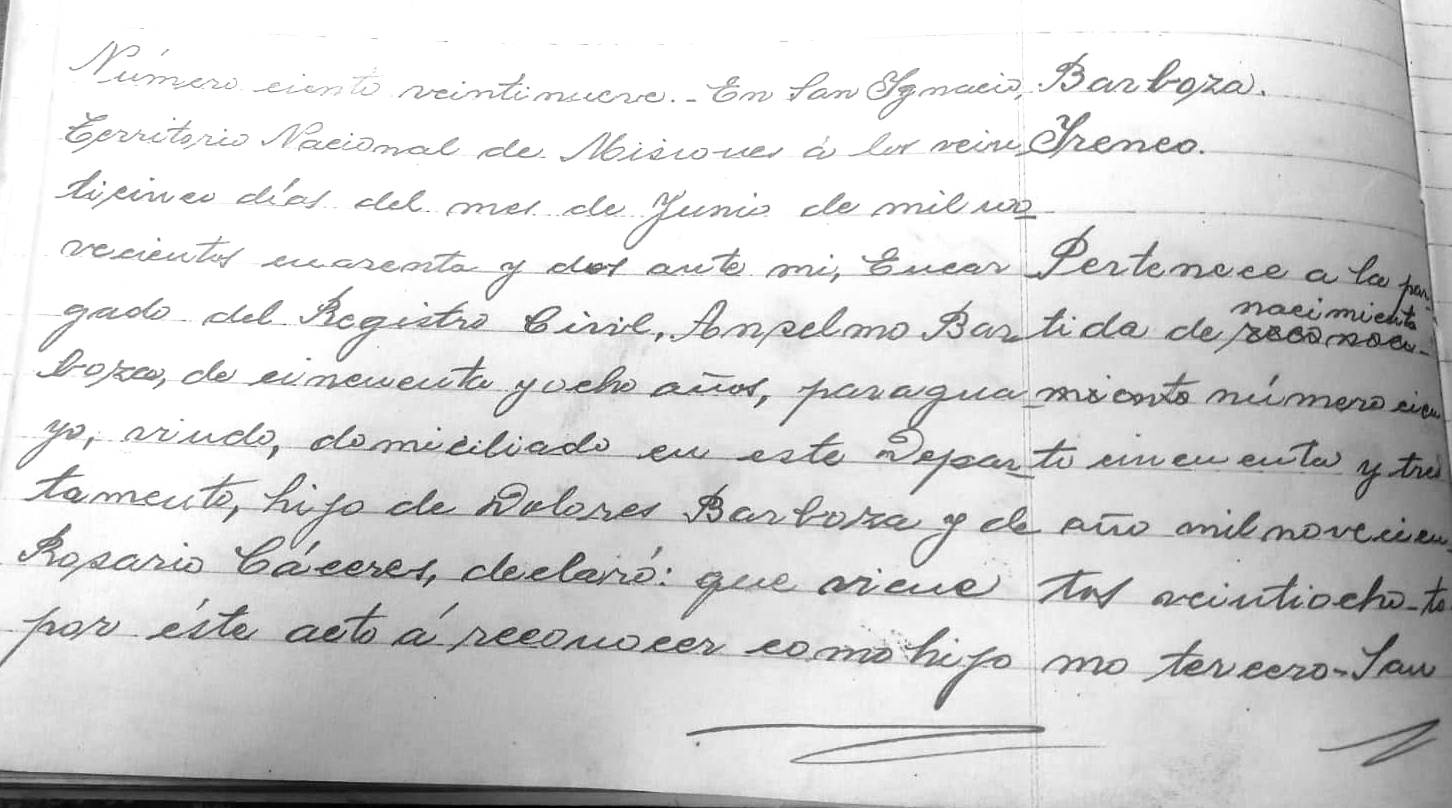 Número ciento veintinueve.- En San Ignacio,
Territorio Nacional de Misiones á los vein
ticinco días del mes de Junio de mil no
vecientos cuarenta y dos ante mi, Encar
gado del Registro Civil, Anselmo Bar
boza, de cincuenta y ocho años, paragua
yo, viudo, domiciliado en este Depar
tamento, hijo de Dolores Barboza y de
Rosario Cáceres, declaró: que viene
por éste acto á reconocer como hijo
Barboza.
Ireneo.
Pertenece a la par
nacimiento
tida de reconoci-
miento número cien
to cincuenta y tres
año mil novecien
tos veintiocho-to
mo tercero-San